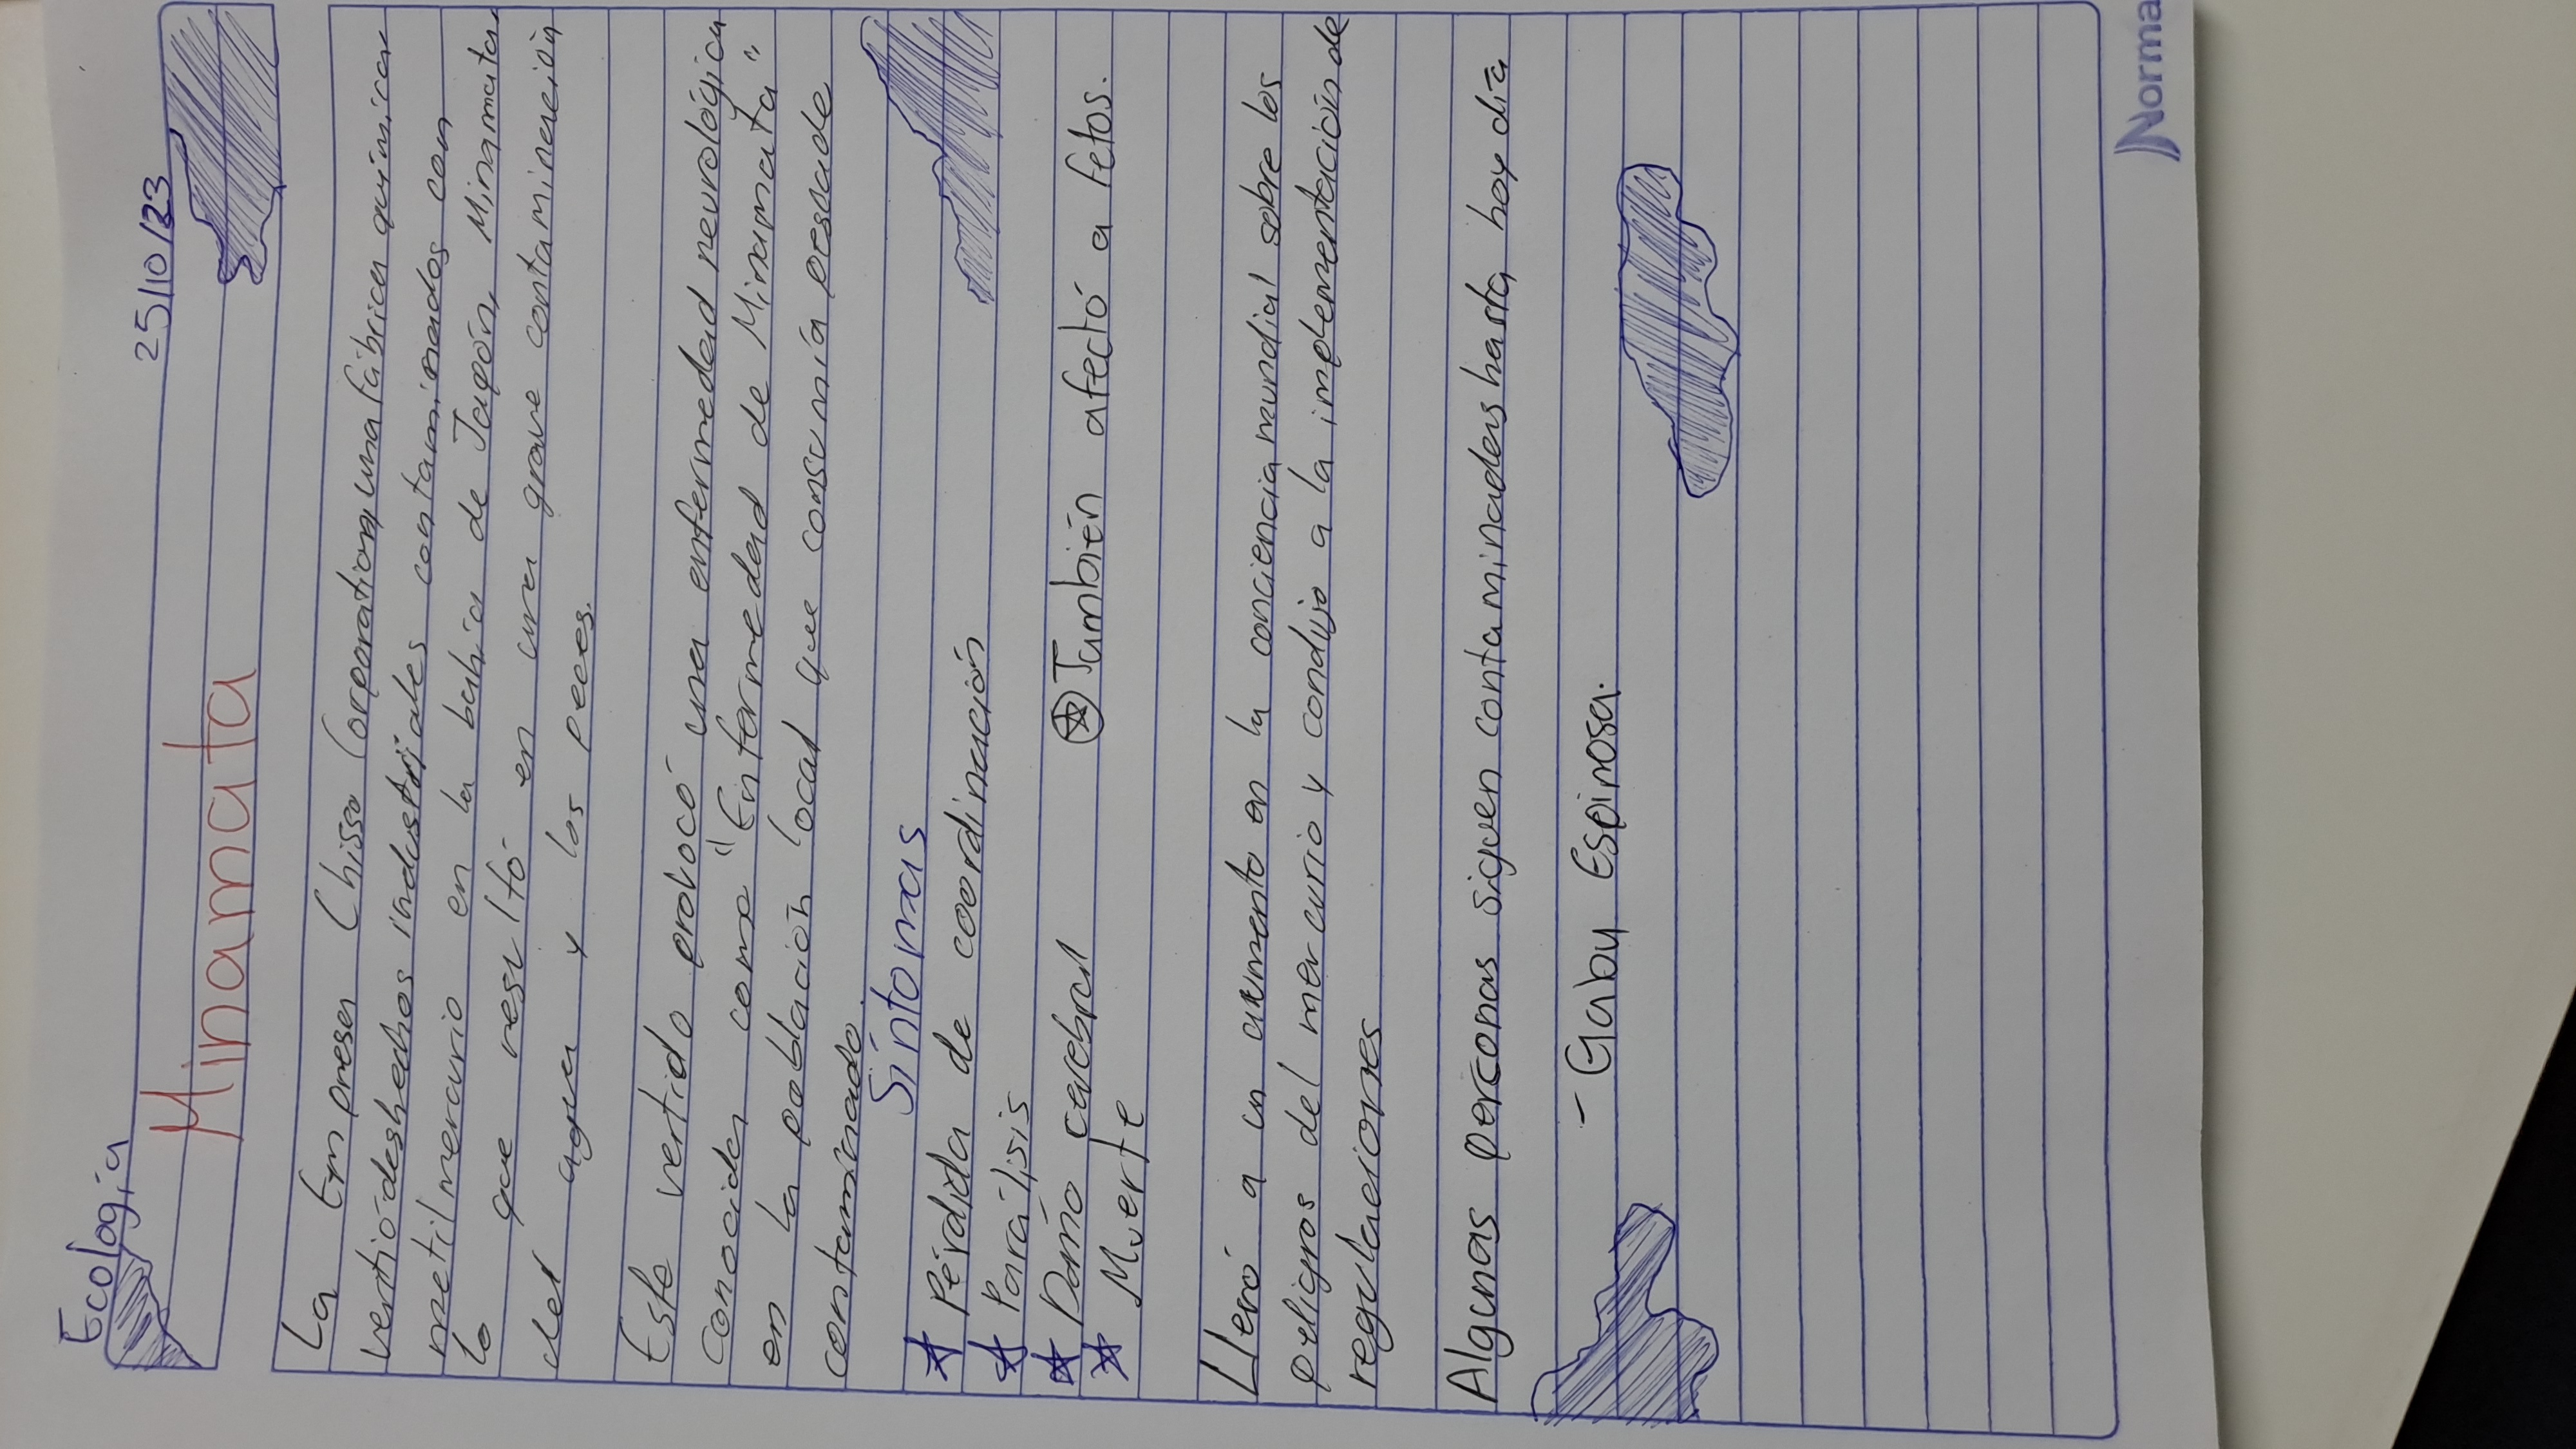 Ecología
25/10/23
Minamata
La Empresa Chisso Corporation, una fábrica química
vertió deshechos industriales contaminados con
metilmercurio en la bahía de Japón, Minamata,
lo que resultó en una grave contaminación
del agua y los peces.
Este vertido provocó una enfermedad neurológica
conocida como "Enfermedad de Minamata"
en la población local que consumía pescado
contaminado.
Síntomas
☆ Pérdida de coordinación
☆ Parálisis
☆ Daño cerebral
☆ Muerte
☆ También afectó a fetos.
Llevó a un aumento en la conciencia mundial sobre los
peligros del mercurio y condujo a la implementación de
regulaciones
Algunas perconas siguen contaminadas hasta hoy día
- Gaby Espinosa.
Norma